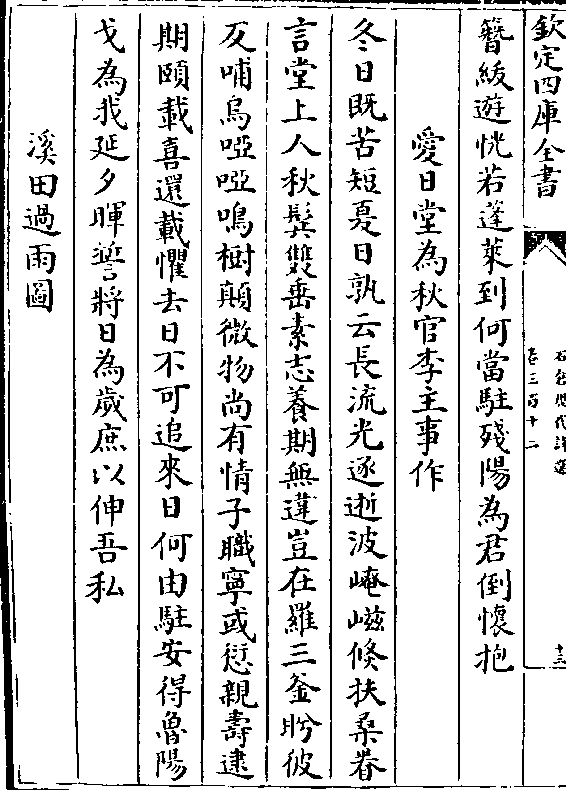 欽定四庫全書
石倉歷代詩選
卷三百十二
十三
簪紱遊恍若蓬萊到何當駐殘陽為君倒懷抱
愛日堂為秋官李主事作
冬日既苦短夏日孰云長流光逐逝波崦嵫倐扶桑眷
言堂上人秋髩雙垂素志養期無違豈在羅三釡盻彼
反哺烏啞啞鳴樹顛微物尚有情子職寧或愆親壽逮
期頤載喜還載懼去日不可追來日何由駐安得魯陽
戈為我延夕暉誓將日為歲庶以伸吾私
溪田過雨圖